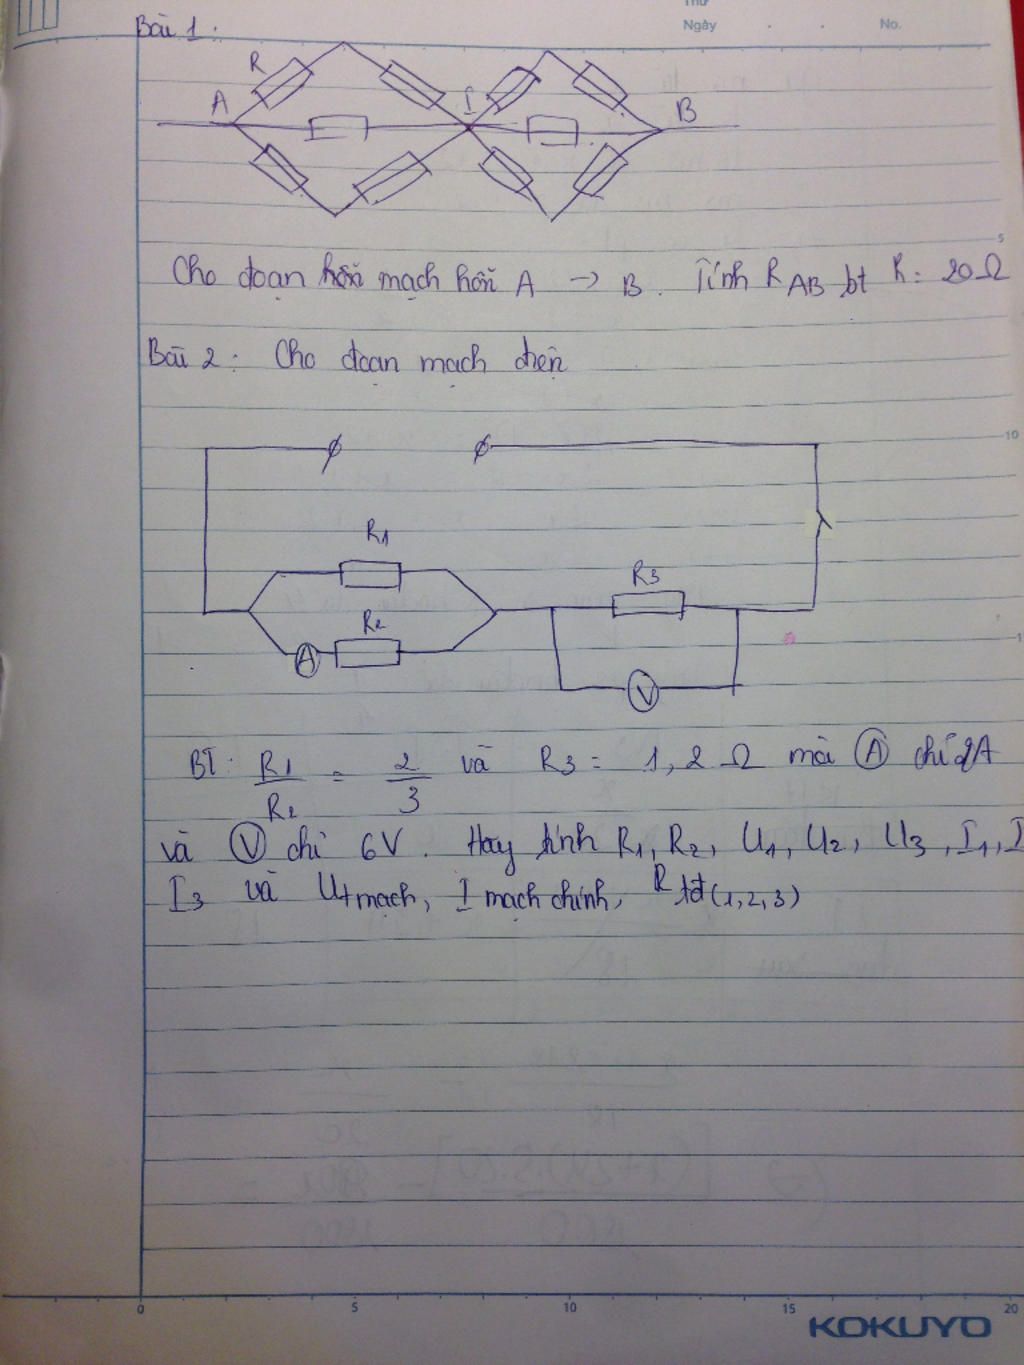 Thứ
Ngày . . No.
Bài 1:
R
A I B
5
Cho đoạn mạch hồi A → B. Tính R AB bt R = 20 Ω
Bài 2: Cho đoạn mạch điện
10
R1
R3
R2
A
V
BT: R1/R2 = 2/3 và R3 = 1,2 Ω mà (A) chỉ 2A
và (V) chỉ 6V. Hãy tính R1, R2, U1, U2, U3, I1, I
I3 và U mạch, I mạch chính, R tđ (1,2,3)
0 5 10 15 20
KOKUYO